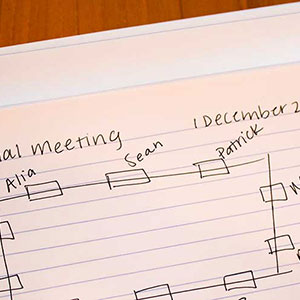 meeting 1 December
Alia Sean Patrick